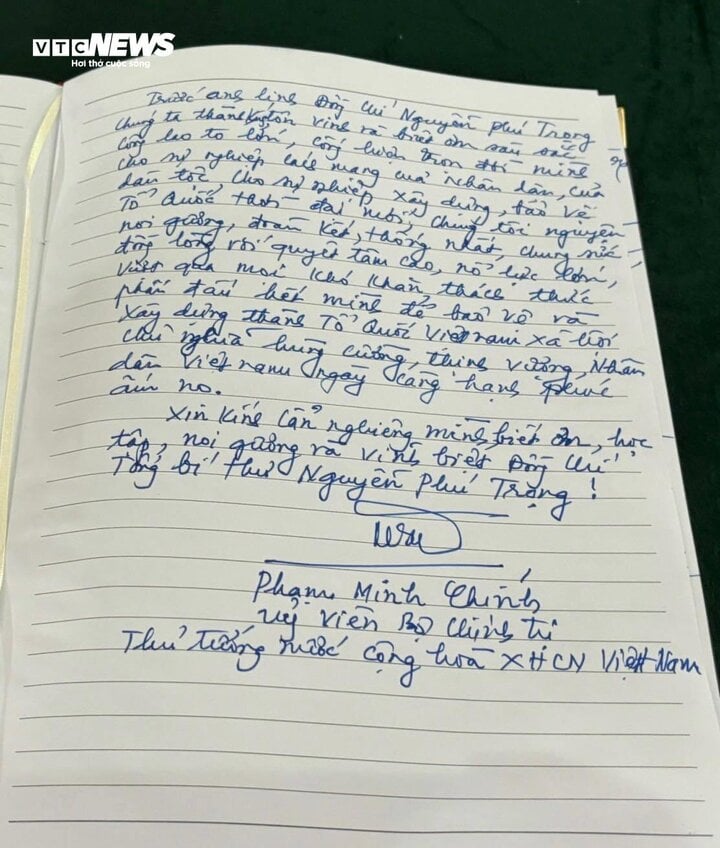 VTC NEWS
Hơi thở cuộc sống
Trước anh linh Đồng chí Nguyễn Phú Trọng
chúng ta thành kính tôn vinh và biết ơn sâu sắc
công lao to lớn, cống hiến trọn đời mình
cho sự nghiệp cách mạng của Nhân dân, của
dân tộc cho sự nghiệp xây dựng, bảo vệ
Tổ Quốc thời đại mới, chúng tôi nguyện
noi gương, đoàn kết, thống nhất, chung sức,
đồng lòng với quyết tâm cao, nỗ lực lớn,
vượt qua mọi khó khăn thách thức
phấn đấu hết mình để bảo vệ và
xây dựng thành Tổ Quốc Việt nam xã hội
chủ nghĩa hùng cường, thịnh vượng, Nhân
dân Việt nam ngày càng hạnh phúc
ấm no.
Xin kính cẩn nghiêng mình biết ơn, học
tập, noi gương và vĩnh biệt Đồng chí
Tổng bí thư Nguyễn Phú Trọng!
Phạm Minh Chính
Uỷ viên Bộ Chính trị
Thủ tướng nước Cộng hoà XHCN Việt Nam